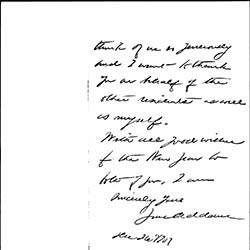 think of us so generously
and I want to thank
you on behalf of the
other residents as well
as myself.
With all good wishes
for the New Year to
both of you, I am
Sincerely yours
Jane Addams
Dec 26